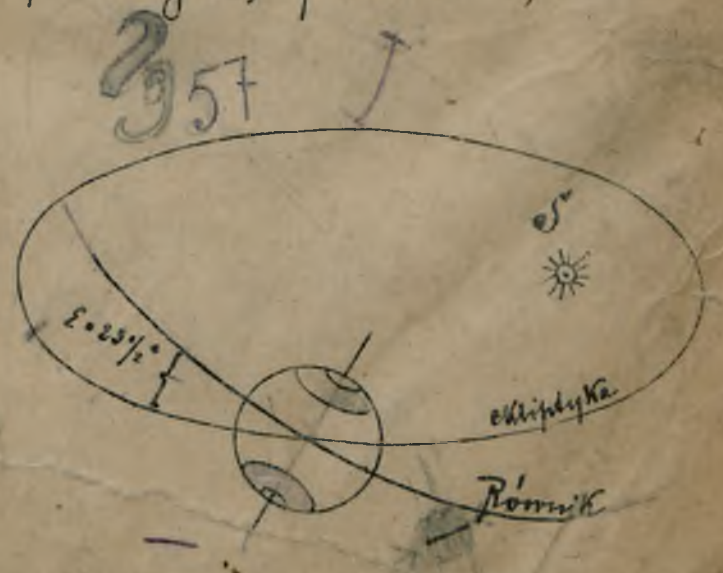 957
S
ε = 23 ½ °
ekliptyka
Równik